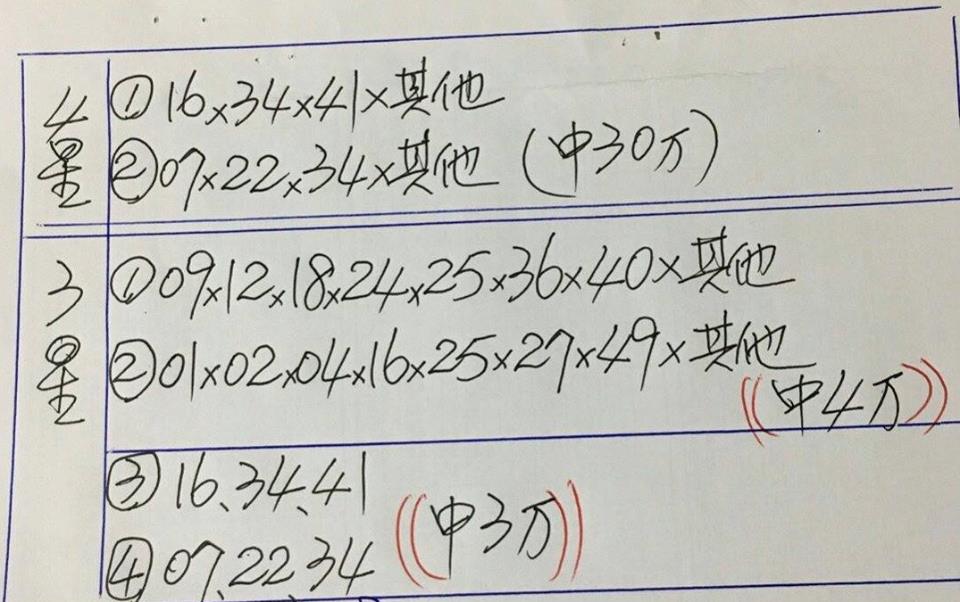 4星
①16×34×41×其他
②07×22×34×其他 (中30万)
3星
①09×12×18×24×25×36×40×其他
②01×02×04×16×25×27×49×其他
((中4万))
③16、34、41
④07、22、34 ((中3万))